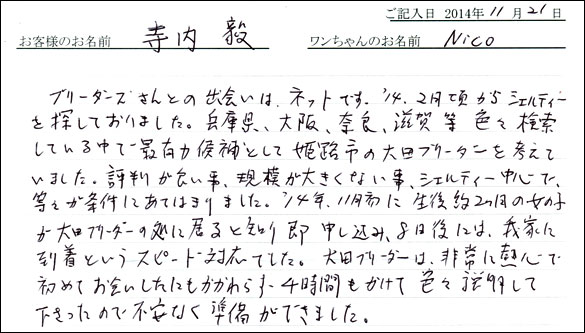 ご記入日 2014年 11月 21日
お客様のお名前 寺内 毅 ワンちゃんのお名前 Nico
ブリーダーズさんとの出会いは、ネットです。'14.2月頃からシェルティー
を探しておりました。兵庫県、大阪、奈良、滋賀等 色々検索
している中で最有力候補として姫路市の大田ブリーダーを考えて
いました。評判が良い事、規模が大きくない事、シェルティー中心で、
等々が条件にあてはまりました。'14年.11月初に生後約2ヶ月の女の子
が大田ブリーダーの処に居ると知り即申し込み、8日後には、我家に
到着というスピード対応でした。大田ブリーダーは、非常に熱心で
初めてお会いしたにもかかわらず、4時間もかけて色々説明して
下さったので不安なく準備ができました。